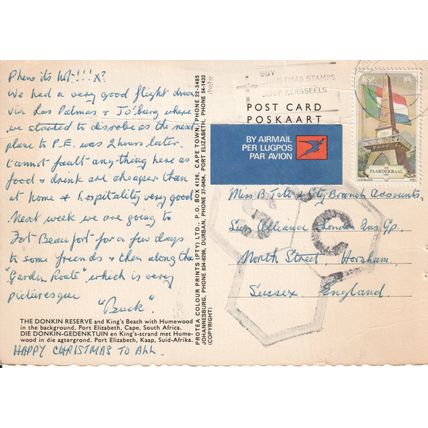 Phew its hot!!! x?
We had a very good flight down
via Las Palmas & Jo'burg where
we started to disrobe as the next
plane to P.E. was 2 hours later.
Cannot fault anything here as
food & drink are cheaper than
at home & hospitality very good
Next week we are going to
Fort Beaufort for a few days
to some friends & then along the
"Garden Route" which is very
picturesque
"Buck"
THE DONKIN RESERVE and King's Beach with Humewood
in the background. Port Elizabeth, Cape, South Africa.
DIE DONKIN-GEDENKTUIN en King's-strand met Hume-
wood in die agtergrond. Port Elizabeth, Kaap, Suid-Afrika.
HAPPY CHRISTMAS TO ALL.
PROTEA COLOUR PRINTS (PTY) LTD., P.O. BOX 4126, CAPE TOWN. PHONE 22-3485
JOHANNESBURG, PHONE 834-6096, DURBAN, PHONE 37-0404, PORT ELIZABETH, PHONE 54-1433
(COPYRIGHT)
BUY
STMAS STAMPS
KOOP KERSSEELS
POST CARD
POSKAART
BY AIRMAIL
PER LUGPOS
PAR AVION
PAARDEKRAAL
Miss B. & City Branch Accounts,
Sun Alliance London Ins. Gp.
North Street, Horsham,
Sussex England